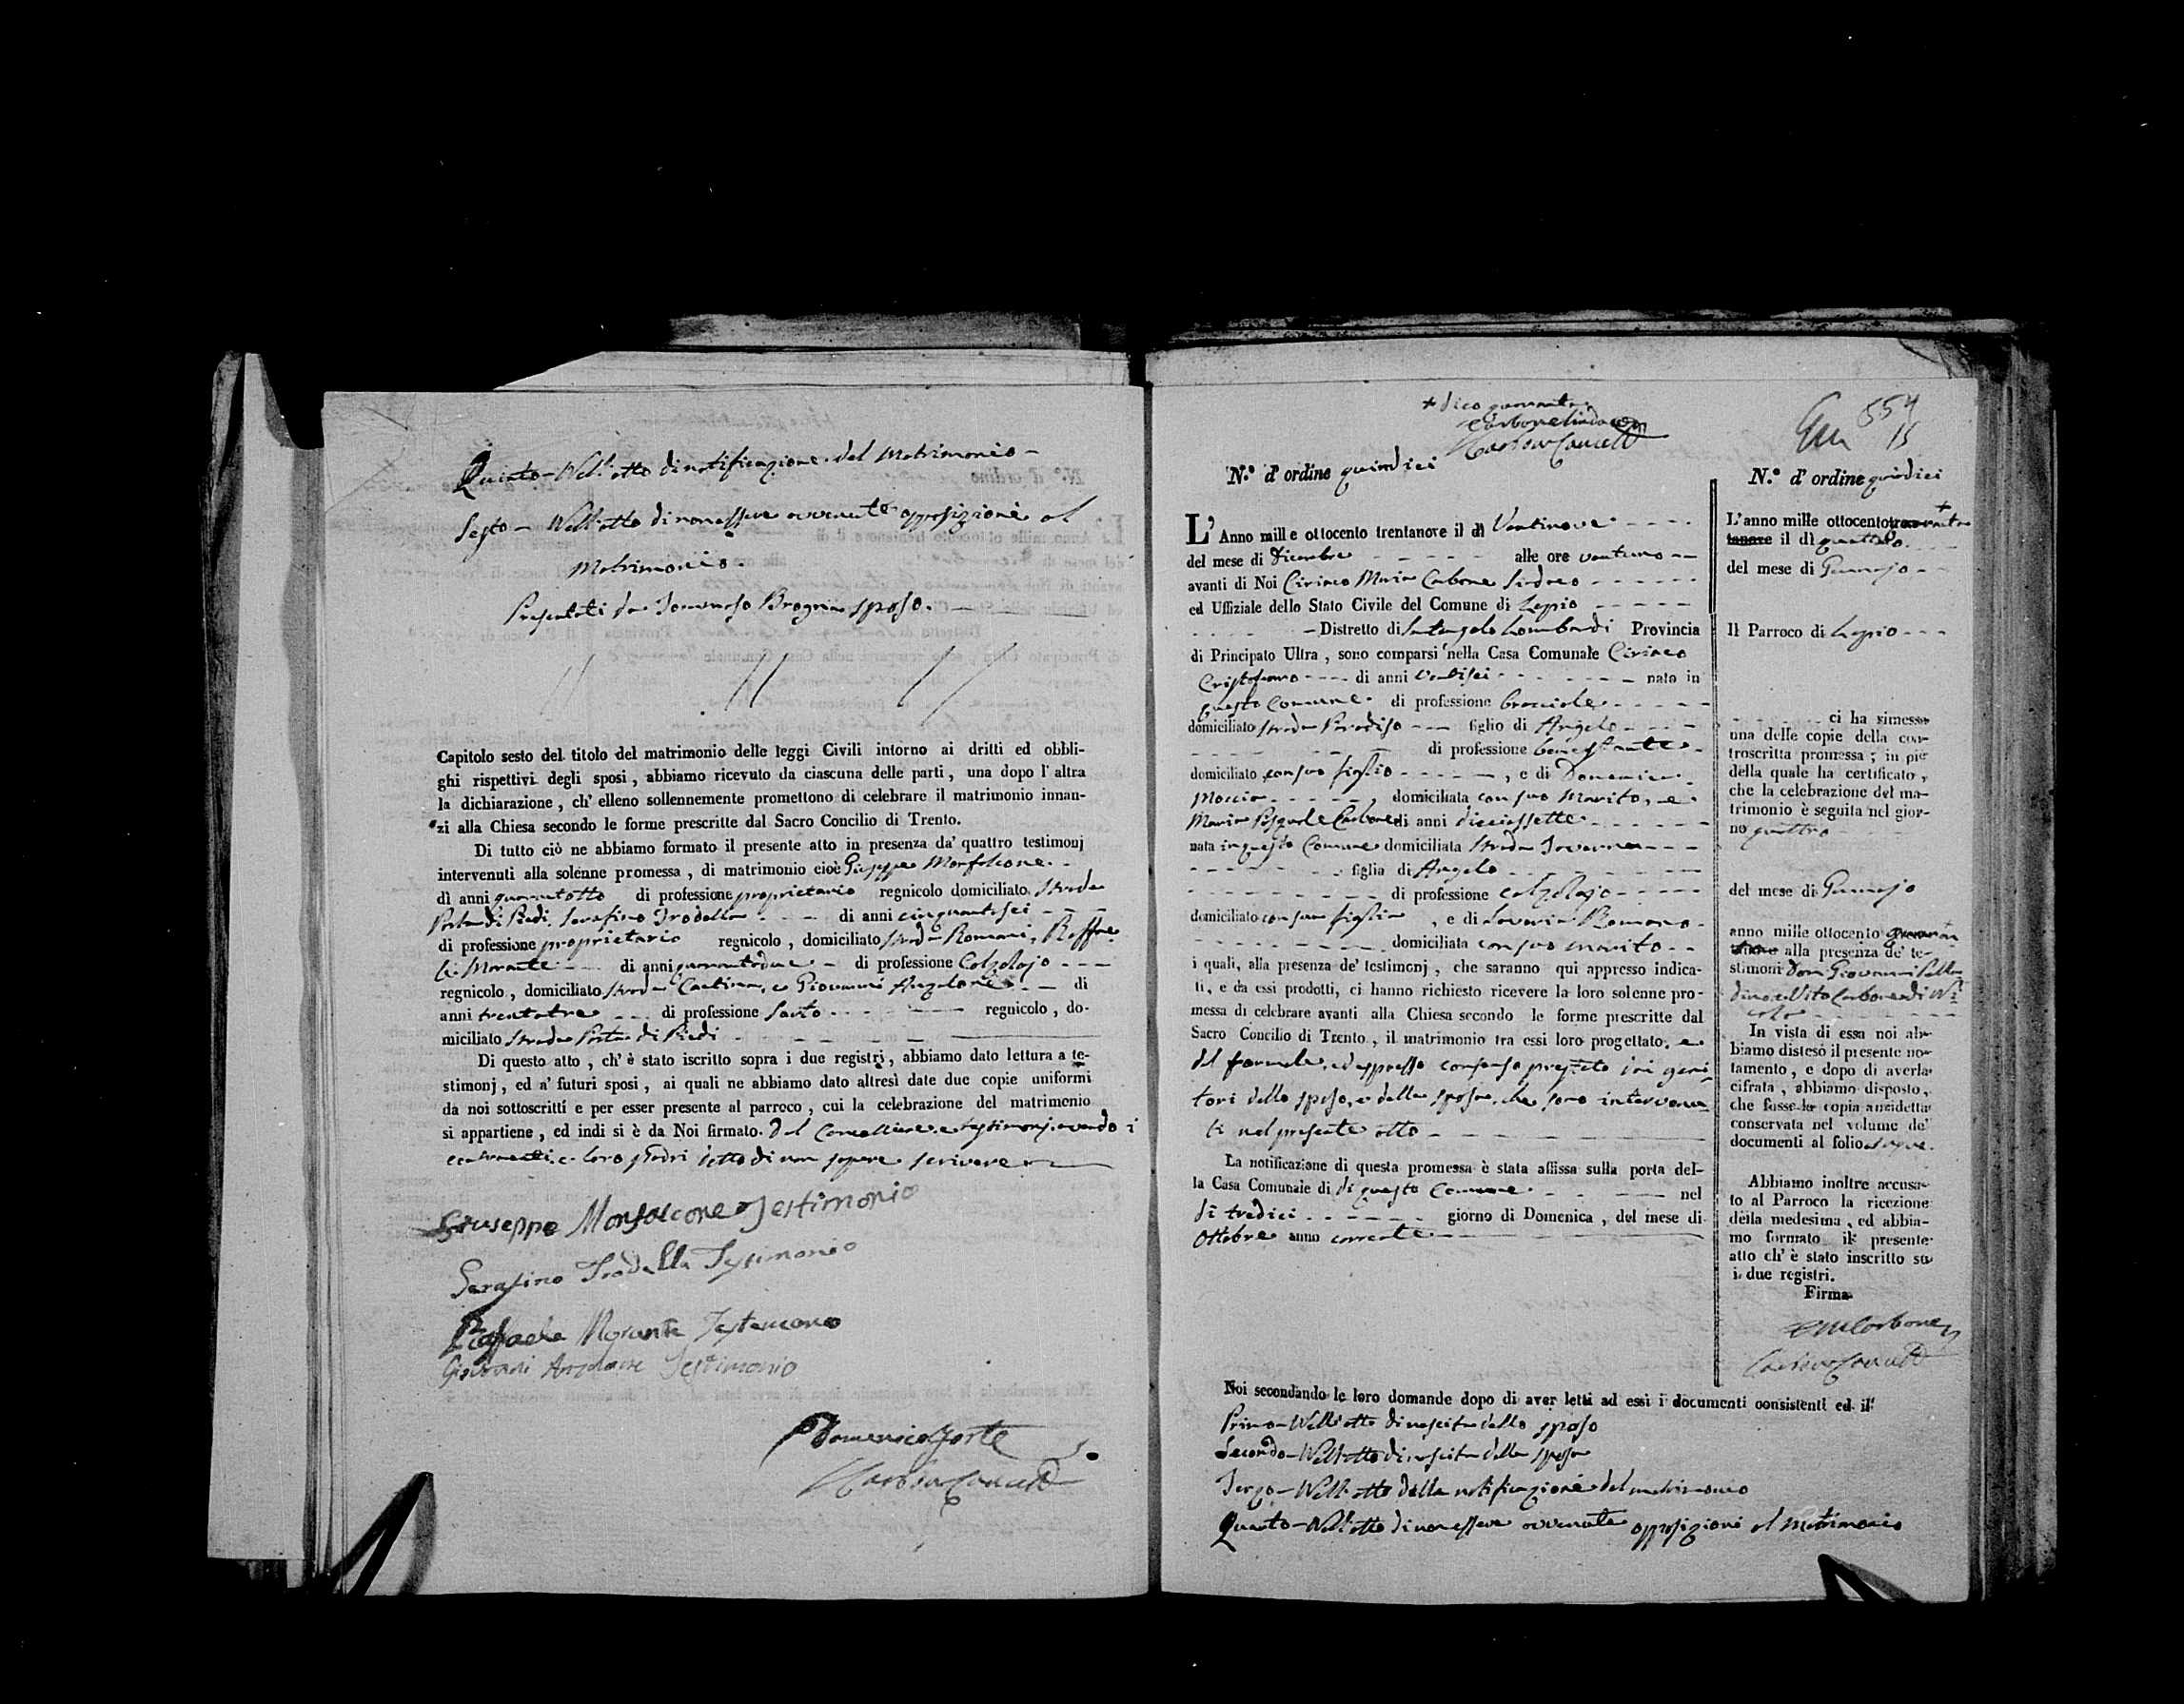 Quinto - Nell'atto di notificazione del Matrimonio -
Sesto - Nell'atto di non essere avvenute opposizione al
Matrimonio.
Presentati da Tommaso Brogna sposo.
Capitolo sesto del titolo del matrimonio delle leggi Civili intorno ai dritti ed obbli-
ghi rispettivi degli sposi, abbiamo ricevuto da ciascuna delle parti, una dopo l'altra
la dichiarazione, ch'elleno sollennemente promettono di celebrare il matrimonio innan-
zi alla Chiesa secondo le forme prescritte dal Sacro Concilio di Trento.
Di tutto ciò ne abbiamo formato il presente atto in presenza da' quattro testimonj
intervenuti alla solenne promessa, di matrimonio cioè Giuseppe Monfalcone
di anni quarantotto di professione proprietario regnicolo domiciliato strada
Porta di Piedi, Serafino Tradella di anni cinquantasei
di professione proprietario regnicolo, domiciliato strada Romani, Raffae-
le Morante di anni quarantadue di professione Calzolajo
regnicolo, domiciliato strada e Giovanni Angelone di
anni trentatre di professione Sarto regnicolo, do-
miciliato strada Porta di Piedi
Di questo atto, ch'è stato iscritto sopra i due registri, abbiamo dato lettura a te-
stimonj, ed a' futuri sposi, ai quali ne abbiamo dato altresì date due copie uniformi
da noi sottoscritti e per esser presente al parroco, cui la celebrazione del matrimonio
si appartiene, ed indi si è da Noi firmato. dal Cancelliere e testimonj avendo i
contraenti e loro padri detto di non sapere scrivere
Giuseppe Monfalcone Testimonio
Serafino Tradella Testimonio
Raffaele Morante Testimonio
Giovanni Angelone Testimonio
Domenico Forte
+ dico quaranta
Carbone Sindaco
554
15
N.º d'ordine quindici
L'Anno mille ottocento trentanove il dì Ventinove
del mese di Dicembre alle ore ventuno
avanti di Noi Ciriaco Maria Carbone Sindaco
ed Uffiziale dello Stato Civile del Comune di Lapio
Distretto di Santangelo Lombardi Provincia
di Principato Ultra, sono comparsi nella Casa Comunale Ciriaco
Cristofano di anni Ventisei nato in
questo Comune di professione bracciale
domiciliato strada Paradiso figlio di Angelo
di professione benestante
domiciliato con suo figlio, e di Domenica
Moccia, domiciliata con suo Marito, e
Maria Pasquale Carbone di anni diciassette
nata in questo Comune domiciliata strada Taverna
figlia di Angelo
di professione calzolajo
domiciliato con sua figlia, e di Saveria Romano
domiciliata con suo marito
i quali, alla presenza de' testimonj, che saranno qui appresso indica-
ti, e da essi prodotti, ci hanno richiesto ricevere la loro solenne pro-
messa di celebrare avanti alla Chiesa secondo le forme prescritte dal
Sacro Concilio di Trento, il matrimonio tra essi loro progettato. e
del formale, ed espresso consenso prestato dai geni-
tori dello sposo, e della sposa, che sono intervenu-
ti nel presente atto
La notificazione di questa promessa è stata affissa sulla porta del-
la Casa Comunale di di questo Comune nel
dì tredici giorno di Domenica, del mese di
Ottobre anno corrente
N.º d'ordine quindici
L'anno mille ottocento quaranta
tanove il dì quattro
del mese di Gennajo
Il Parroco di Lapio
ci ha rimesso
una delle copie della con-
troscritta promessa; in piè
della quale ha certificato,
che la celebrazione del ma-
trimonio è seguita nel gior-
no quattro
del mese di Gennajo
anno mille ottocento quaran
alla presenza de' te-
stimoni Don Giovanni
e Vito Carbone di Ni-
cola
In vista di essa noi ab-
biamo disteso il presente no-
tamento, e dopo di averla
cifrata, abbiamo disposto,
che fosse la copia anzidetta
conservata nel volume de'
documenti al foglio
Abbiamo inoltre accusa-
to al Parroco la ricezione
della medesima, ed abbia-
mo formato il presente
atto ch'è stato inscritto su
i due registri.
Firma
C M Carbone
Noi secondando le loro domande dopo di aver letti ad essi i documenti consistenti ed il
Primo - Nell'atto di nascita dello sposo
Secondo - Nell'atto di nascita della sposa
Terzo - Nell'atto della notificazione del matrimonio
Quarto - Nell'atto di non essere avvenute opposizioni al Matrimonio